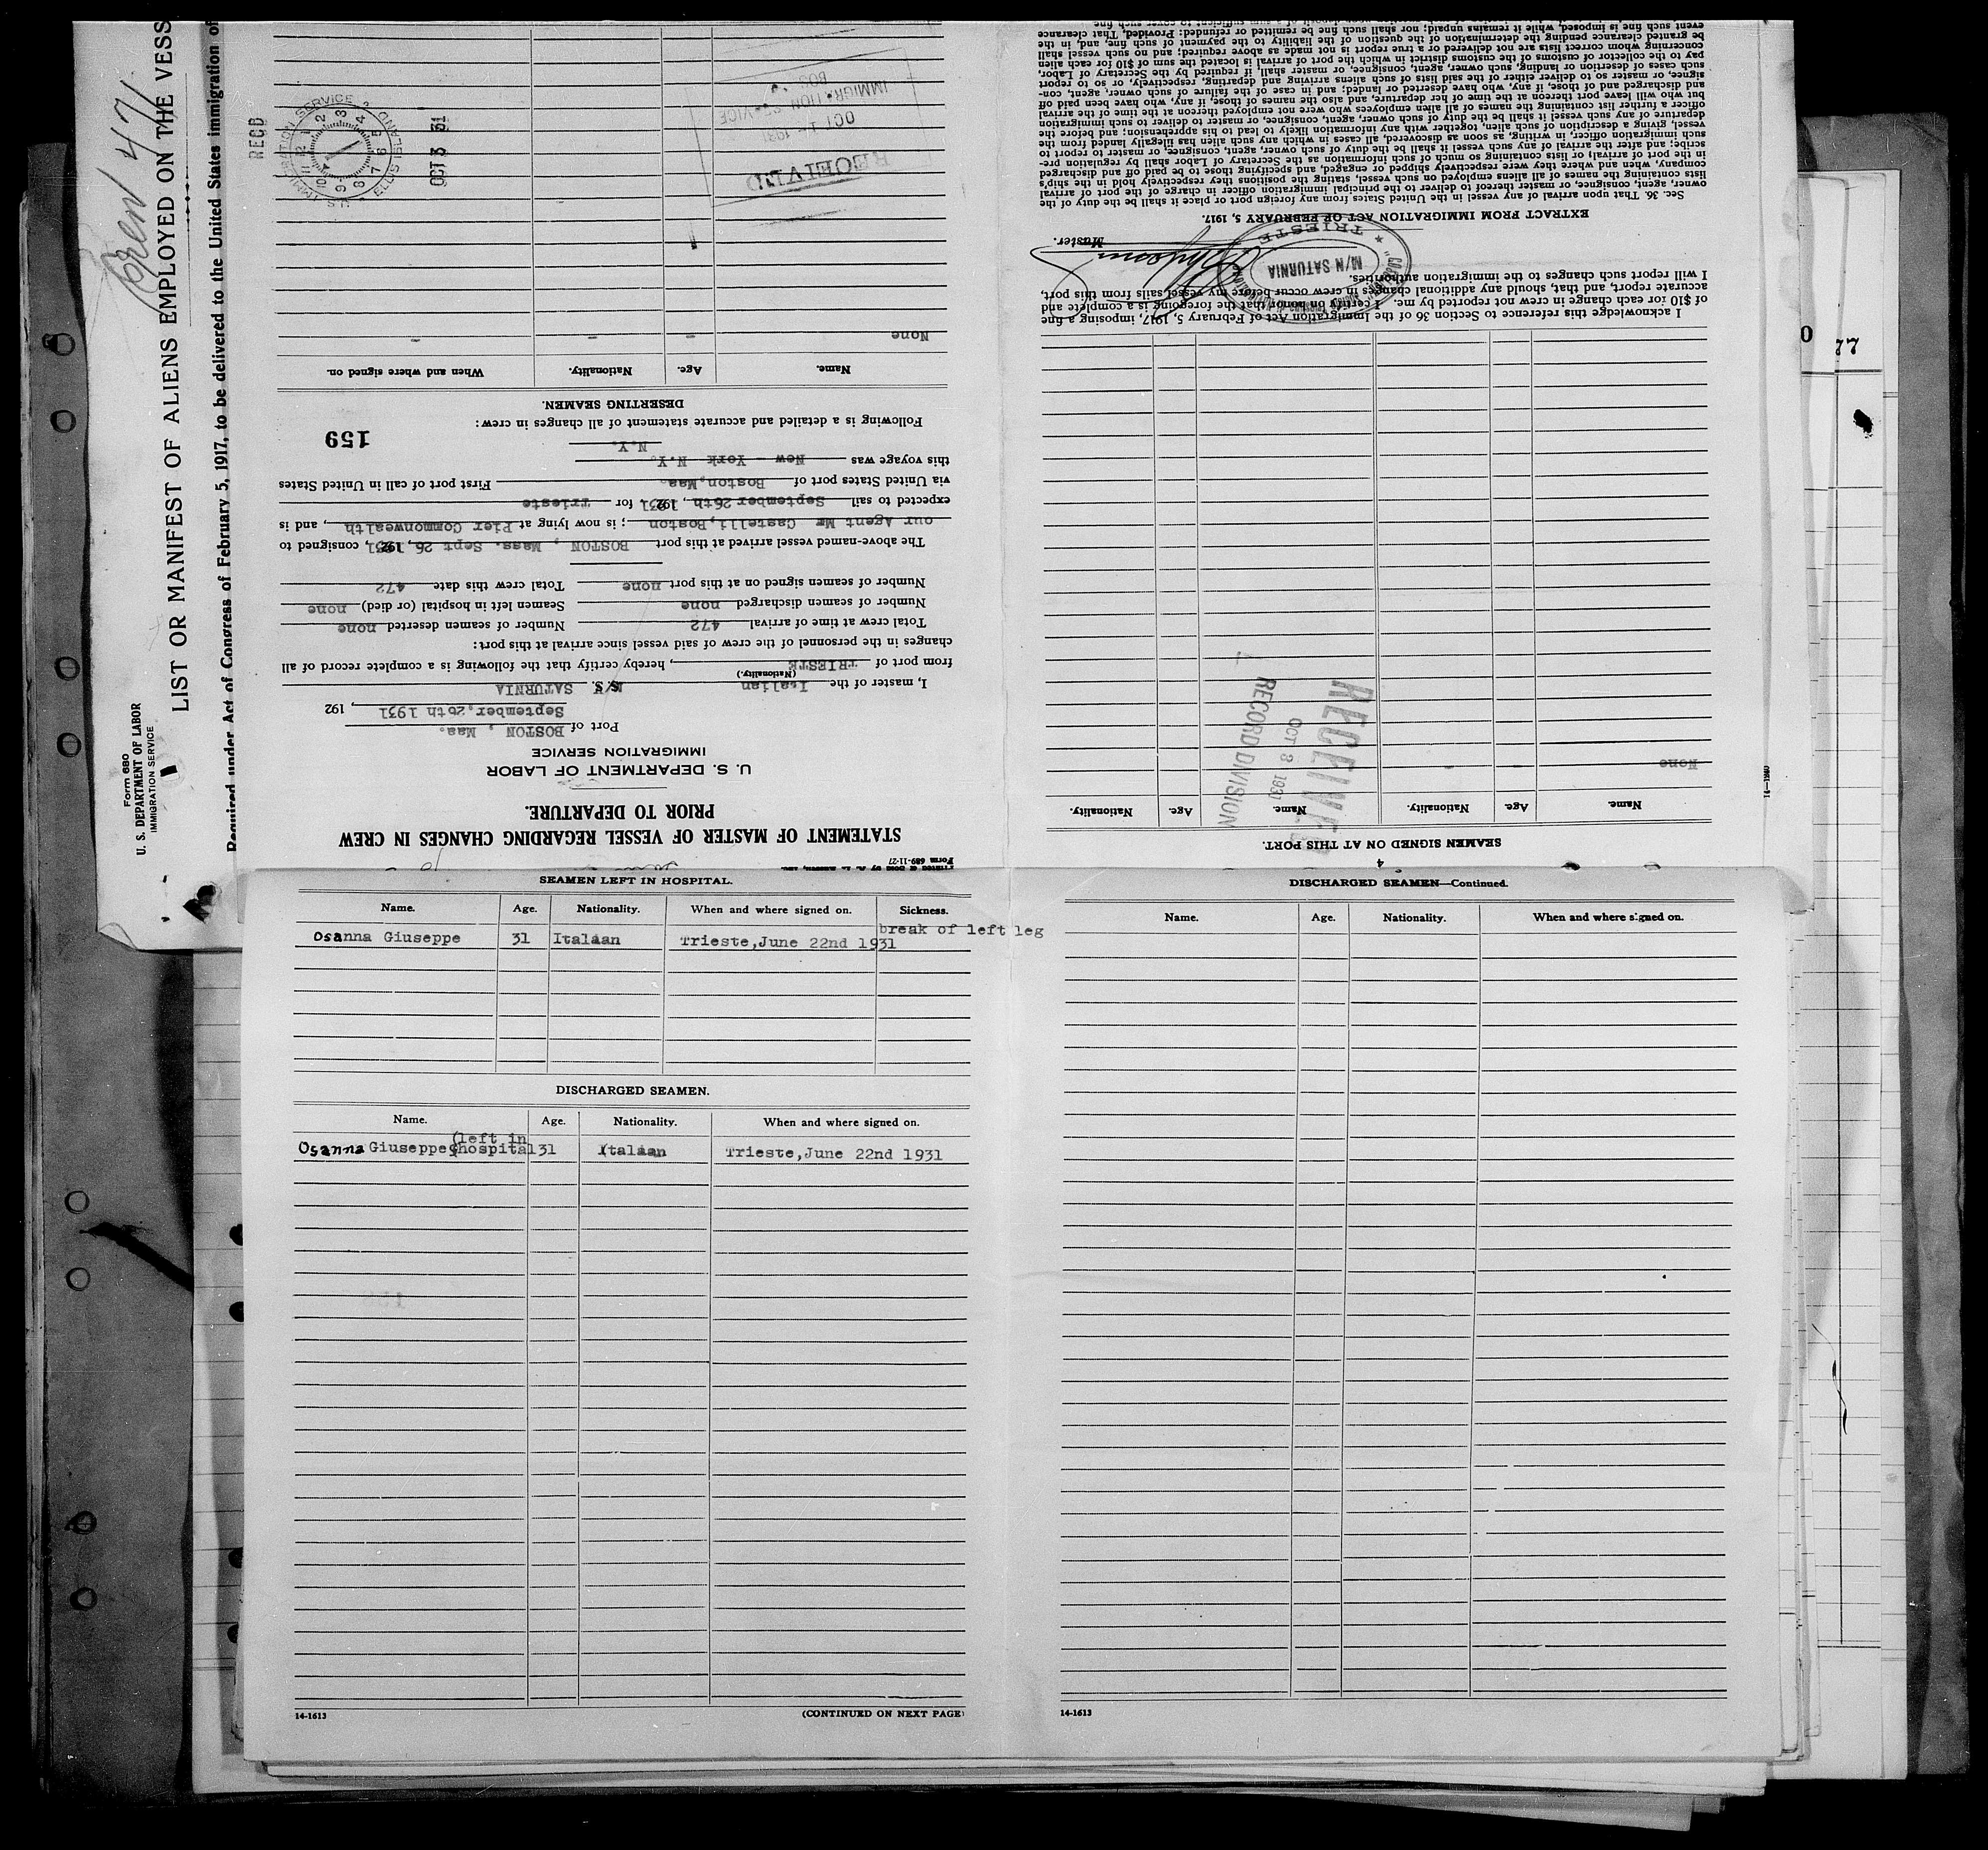 Crew 471
Form 680
U. S. DEPARTMENT OF LABOR
IMMIGRATION SERVICE
LIST OR MANIFEST OF ALIENS EMPLOYED ON THE VESS
Required under Act of Congress of February 5, 1917, to be delivered to the United States immigration of
REC'D
U.S. IMMIGRATION SERVICE
ELLIS ISLAND
OCT 3 31
Form 689-11-27
STATEMENT OF MASTER OF VESSEL REGARDING CHANGES IN CREW
PRIOR TO DEPARTURE.
U. S. DEPARTMENT OF LABOR
IMMIGRATION SERVICE
Port of BOSTON , Mas.
September, 26th 1931, 192
I, master of the Italian M/S. SATURNIA
(Nationality.)
from port of TRIESTE, hereby certify that the following is a complete record of all
changes in the personnel of the crew of said vessel since arrival at this port:
Total crew at time of arrival 472 Number of seamen deserted none
Number of seamen discharged none Seamen left in hospital (or died) none
Number of seamen signed on at this port none Total crew this date 472
The above-named vessel arrived at this port BOSTON , Mass. Sept 26, 1931, consigned to
our Agent Mr Castelli, Boston ; is now lying at Pier Commonwealth, and is
expected to sail September 26th, 1931, for Trieste
via United States port of Boston, Mas. First port of call in United States
this voyage was New - York N.Y.
N.Y.
159
Following is a detailed and accurate statement of all changes in crew:
DESERTING SEAMEN.
Name. Age. Nationality. When and where signed on.
None - - -
RECEIVED
OCT 1 - 1931
IMMIGRATION SERVICE
BOS
4
SEAMEN SIGNED ON AT THIS PORT.
Name. Age. Nationality. Name. Age. Nationality.
None - -
RECEIVED
OCT 3 1931
RECORD DIVISION
14-1240
I acknowledge this reference to Section 36 of the Immigration Act of February 5, 1917, imposing a fine
of $10 for each change in crew not reported by me. I certify on honor that the foregoing is a complete and
accurate report, and that, should any additional changes in crew occur before my vessel sails from this port,
I will report such changes to the immigration authorities.
M/N SATURNIA
TRIESTE
Master.
EXTRACT FROM IMMIGRATION ACT OF FEBRUARY 5, 1917.
Sec. 36. That upon arrival of any vessel in the United States from any foreign port or place it shall be the duty of the
owner, agent, consignee, or master thereof to deliver to the principal immigration officer in charge of the port of arrival
lists containing the names of all aliens employed on such vessel, stating the positions they respectively hold in the ship's
company, when and where they were respectively shipped or engaged, and specifying those to be paid off and discharged
in the port of arrival; or lists containing so much of such information as the Secretary of Labor shall by regulation pre-
scribe; and after the arrival of any such vessel it shall be the duty of such owner, agent, consignee, or master to report to
such immigration officer, in writing, as soon as discovered, all cases in which any such alien has illegally landed from the
vessel, giving a description of such alien, together with any information likely to lead to his apprehension; and before the
departure of any such vessel it shall be the duty of such owner, agent, consignee, or master to deliver to such immigration
officer a further list containing the names of all alien employees who were not employed thereon at the time of the arrival
but who will leave port thereon at the time of her departure, and also the names of those, if any, who have been paid off
and discharged and of those, if any, who have deserted or landed; and in case of the failure of such owner, agent, con-
signee, or master so to deliver either of the said lists of such aliens arriving and departing, respectively, or so to report
such cases of desertion or landing, such owner, agent, consignee, or master shall, if required by the Secretary of Labor,
pay to the collector of customs of the customs district in which the port of arrival is located the sum of $10 for each alien
concerning whom correct lists are not delivered or a true report is not made as above required; and no such vessel shall
be granted clearance pending the determination of the question of the liability to the payment of such fine, and, in the
event such fine is imposed, while it remains unpaid; nor shall such fine be remitted or refunded: Provided, That clearance
0
77
SEAMEN LEFT IN HOSPITAL.
Name. Age. Nationality. When and where signed on. Sickness.
Osanna Giuseppe 31 Italaan Trieste,June 22nd 1931 break of left leg
DISCHARGED SEAMEN.
Name. Age. Nationality. When and where signed on.
Osanna Giuseppe (left in hospital 31 Italaan Trieste,June 22nd 1931
14-1613 (CONTINUED ON NEXT PAGE)
DISCHARGED SEAMEN—Continued.
Name. Age. Nationality. When and where signed on.
14-1613